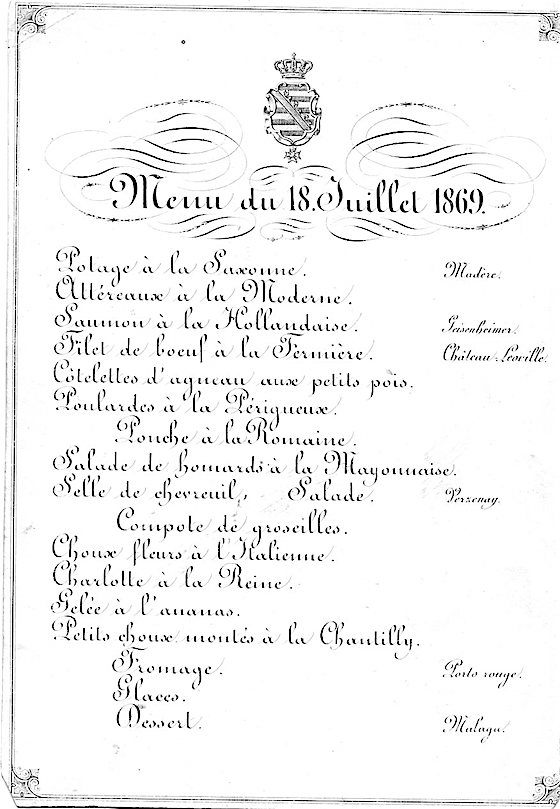 Menu du 18. Juillet 1869.
Potage à la Saxonne. Madère.
Attéreaux à la Moderne.
Saumon à la Hollandaise. Geisenheimer.
Filet de boeuf à la Fermière. Château-Leoville.
Côtelettes d'agneau aux petits pois.
Poulardes à la Périgueux.
Ponche à la Romaine.
Salade de homards à la Mayonnaise.
Selle de chevreuil, Salade. Verzenay.
Compote de groseilles.
Choux fleurs à l'Italienne.
Charlotte à la Reine.
Gelée à l'ananas.
Petits choux montés à la Chantilly.
Fromage. Porto rouge.
Glaces.
Dessert. Malaga.